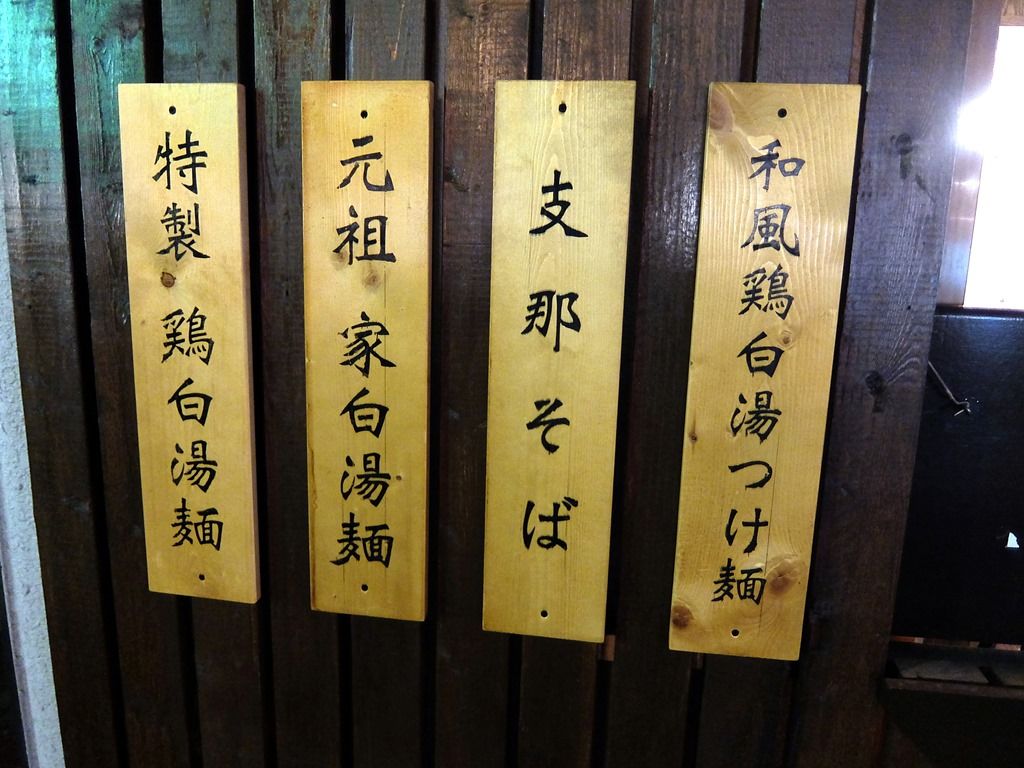 和風鶏白湯つけ麺
支那そば
元祖 家白湯麺
特製 鶏白湯麺